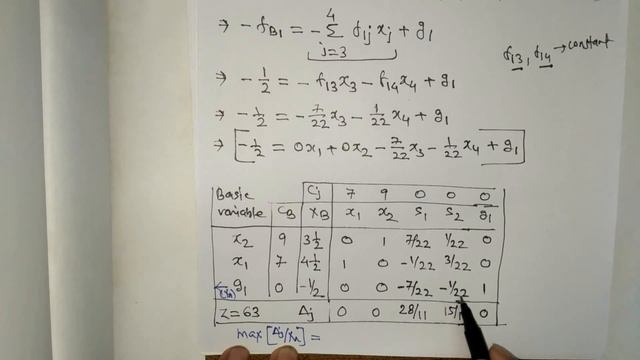 ⇒ -f_B1 = -Σ_{j=3}^{4} f_1j x_j + g_1
f_13, f_14 → constant
⇒ -1/2 = -f_13 x_3 - f_14 x_4 + g_1
⇒ -1/2 = -7/22 x_3 - 1/22 x_4 + g_1
⇒ -1/2 = 0x_1 + 0x_2 - 7/22 x_3 - 1/22 x_4 + g_1
Cj 7 9 0 0 0
Basic variable CB XB x_1 x_2 S_1 S_2 g_1
x_2 9 3 1/2 0 1 7/22 1/22 0
x_1 7 4 1/2 1 0 -1/22 3/22 0
g_1 0 -1/2 0 0 -7/22 -1/22 1
Z=63 Δj 0 0 28/11 0
max[Δj/x_r] =